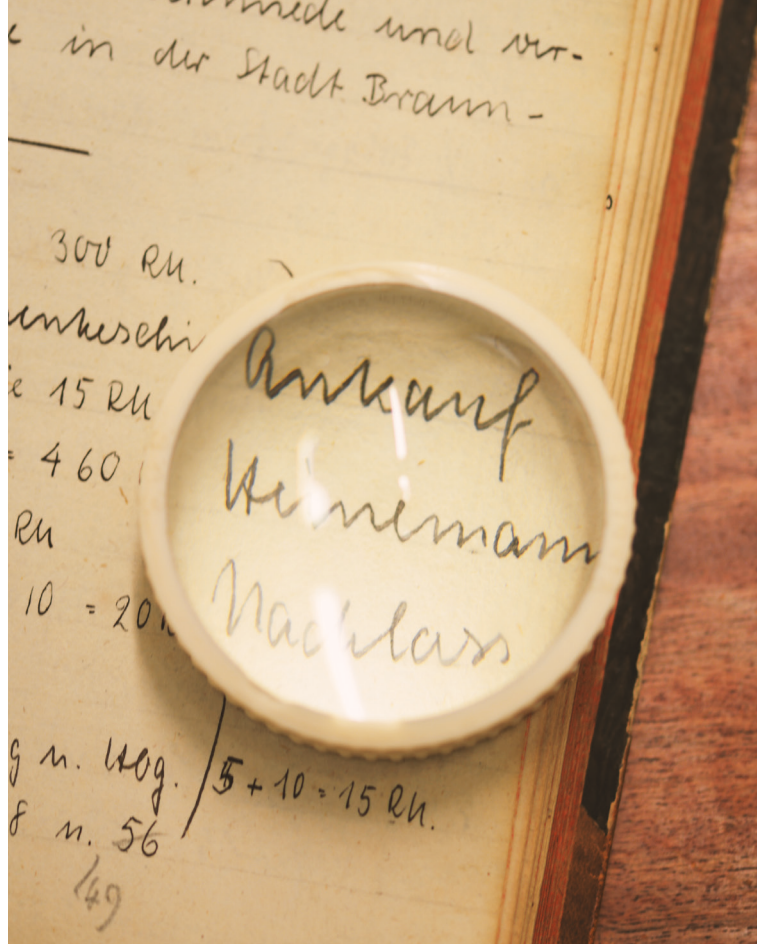 und ver-
in der Stadt Braun-
300 RM.
15 RM
= 460
RM
10 = 20
Ankauf
Heinemann
Nachlass
g u. Hog.
5 + 10 = 15 RM.
8 u. 56
49